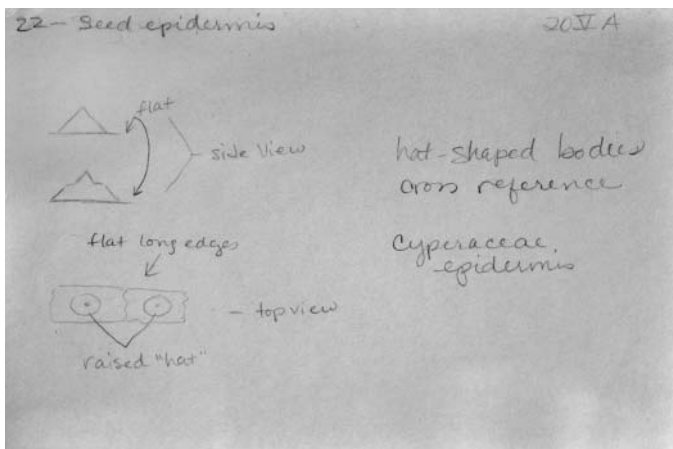 22 - Seed epidermis
20 V A
flat
side view
hat-shaped bodies
cross reference
flat long edges
Cyperaceae,
epidermis
- top view
raised "hat"